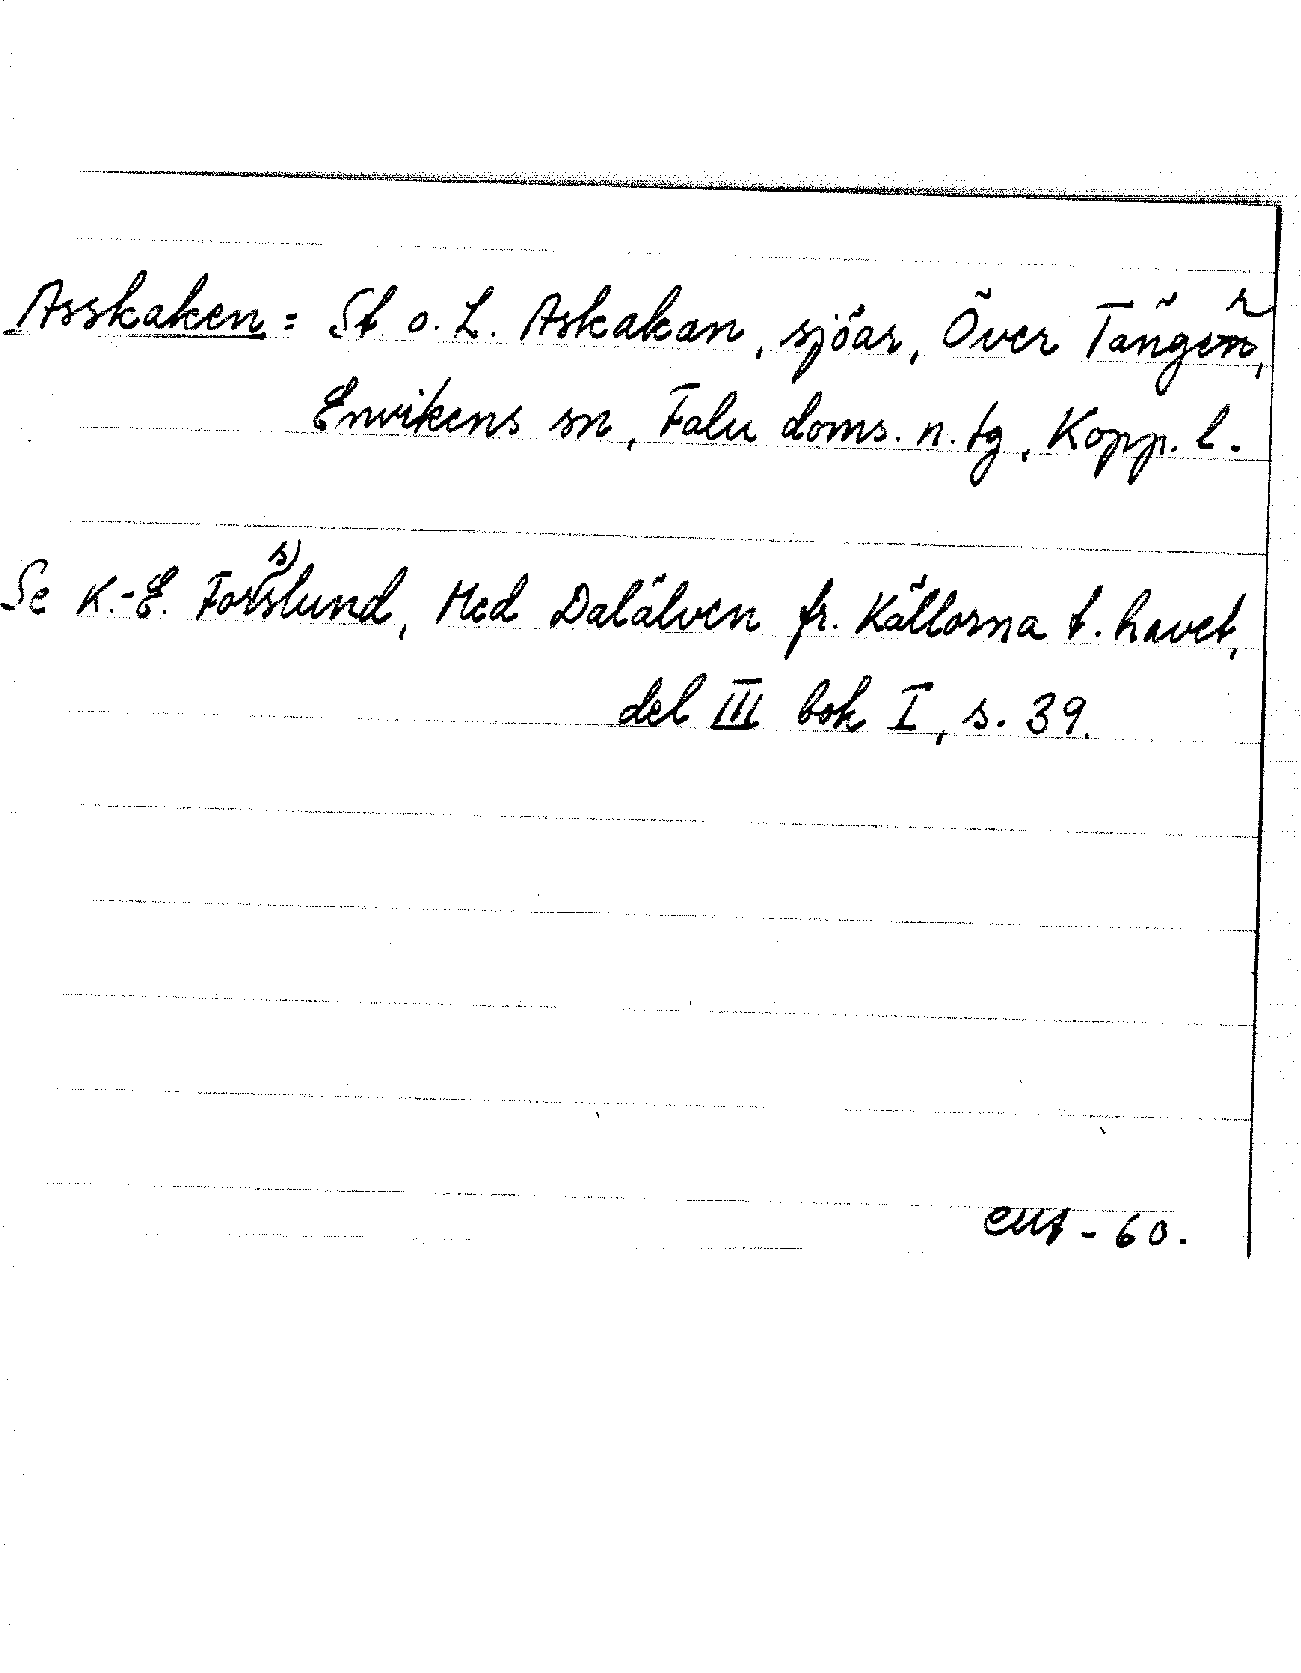 Asskaken = St o. L. Askakan, sjöar, Över Tänger,
Envikens sn, Falu doms. n. tg, Kopp. l.
Se K.-E. Forsslund, Med Dalälven fr. källorna t. havet,
del III bok I, s. 39.
- 60.